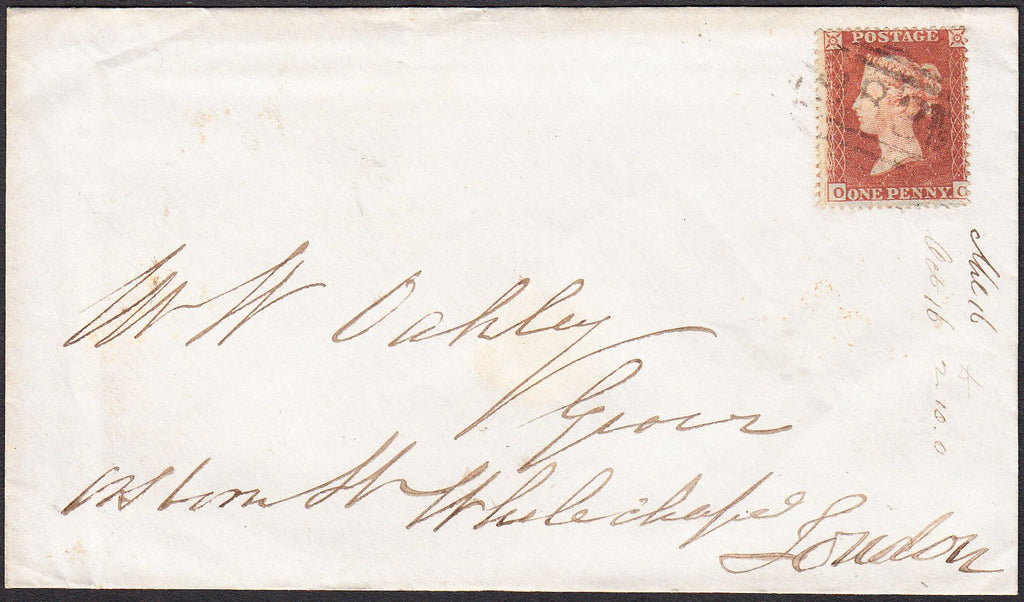 POSTAGE
O ONE PENNY C
Mr W Oakley
Grocer
Osborn St Whitechapel
London
Oct 16
2.10.0